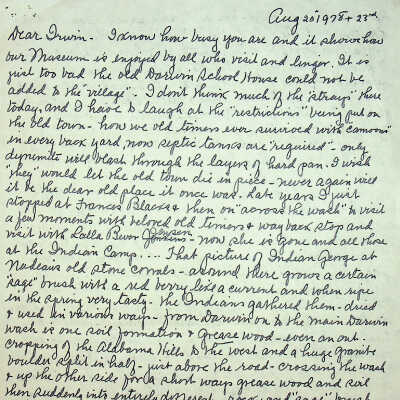 Aug 20 1975 + 23rd
Dear Irwin - I know how busy you are and it shows how
our Museum is enjoyed by all who visit and linger. It is
just too bad the old Darwin School House could not be
added to the "village" - I don't think much of the "strays" there
today, and I have to laugh at the "restrictions" being put on
the old town - how we old timers ever survived with
in every back yard, now septic tanks are "required" - only
dynamite will blast through the layers of hard pan. I wish
"they" would let the old town die in piece - never again will
it be the dear old place it once was. Late years I just
stopped at Frances Blacks & then on "across the wash" to visit
a few moments with beloved old timers & way back stop and
visit with Lalla Bever - now she is gone and all those
at the Indian Camp.... That picture of Indian George at
Nadeau's old stone corrals - around there grows a certain
"sage" brush with a red berry like a currant and when ripe
in the spring very tasty. the Indians gathered them - dried
& used in various ways - from Darwin on to the main Darwin
wash is one soil formation & grease wood - even an out-
cropping of the Alabama Hills to the west and a huge granite
boulder split in half - just above the road - crossing the wash
& up the other side for a short ways grease wood and soil
then suddenly into entirely different rock - and "sage" brush